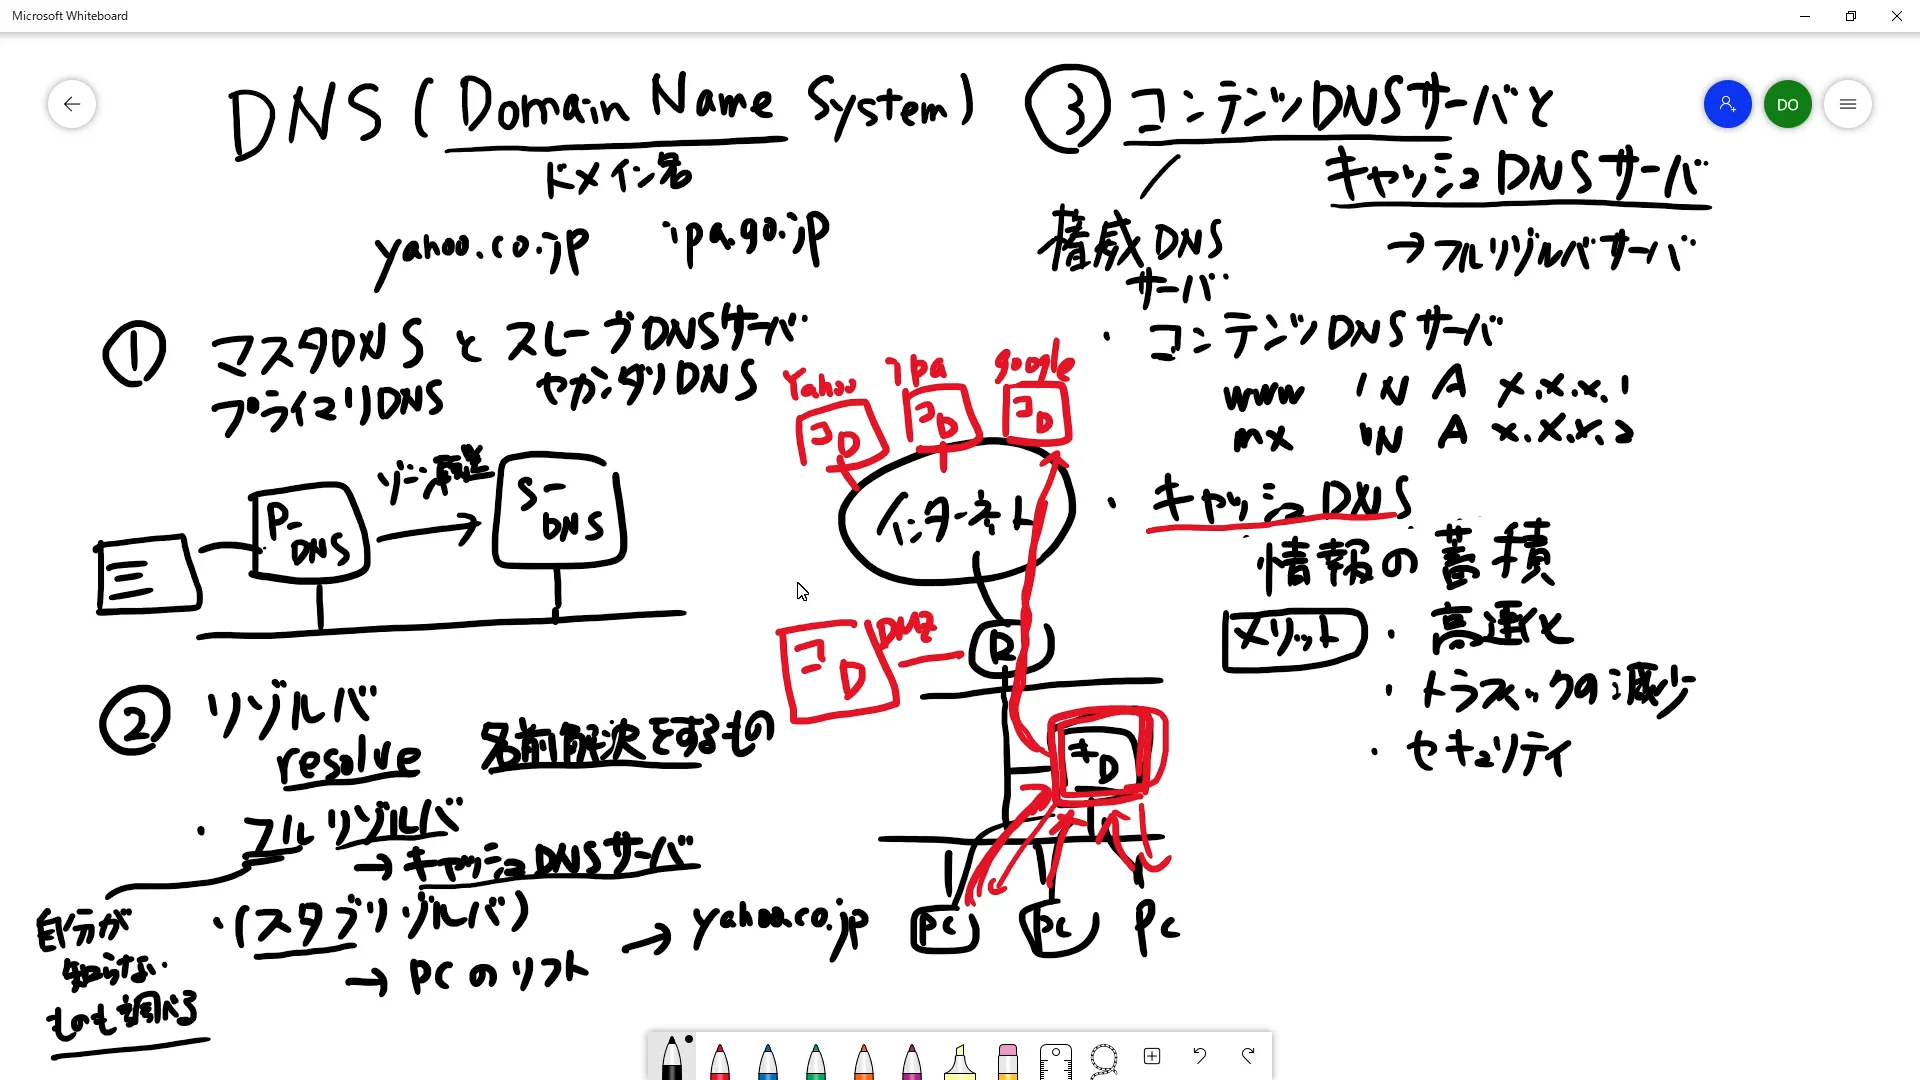 Microsoft Whiteboard
DO
DNS (Domain Name System)
ドメイン名
yahoo.co.jp ipa.go.jp
① マスタDNS と スレーブDNSサーバ
プライマリDNS セカンダリDNS
P-
DNS
ゾーン転送
S-
DNS
② リゾルバ
resolve 名前解決をするもの
・フルリゾルバ
→キャッシュDNSサーバ
自分が
知らない
ものも調べる
・(スタブリゾルバ)
→ PCのソフト → yahoo.co.jp
Yahoo ipa google
コD コD コD
インターネット
コD DMZ R
キD
PC PC PC
③ コンテンツDNSサーバと
キャッシュDNSサーバ
権威DNS
サーバ
→フルリゾルバサーバ
・コンテンツDNSサーバ
www IN A x.x.x.1
mx IN A x.x.x.2
・キャッシュDNS
情報の蓄積
メリット ・高速化
・トラフィックの減少
・セキュリティ